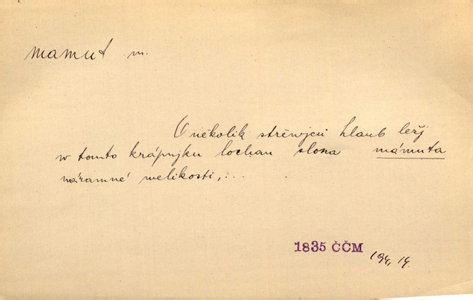 mamut m.
O několik střewjců hlaub ležj
w tomto krápnjku lochan slona mámuta
náramné welikosti, ...
1835 ČČM
194, 14.